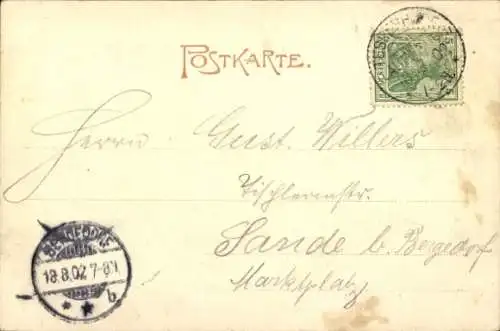 POSTKARTE.
Herrn Gust. Willers
Tischlermstr.
Sande b. Bergedorf
Marktplatz
BERGEDORF
18.8.02 7-8V.
* * b